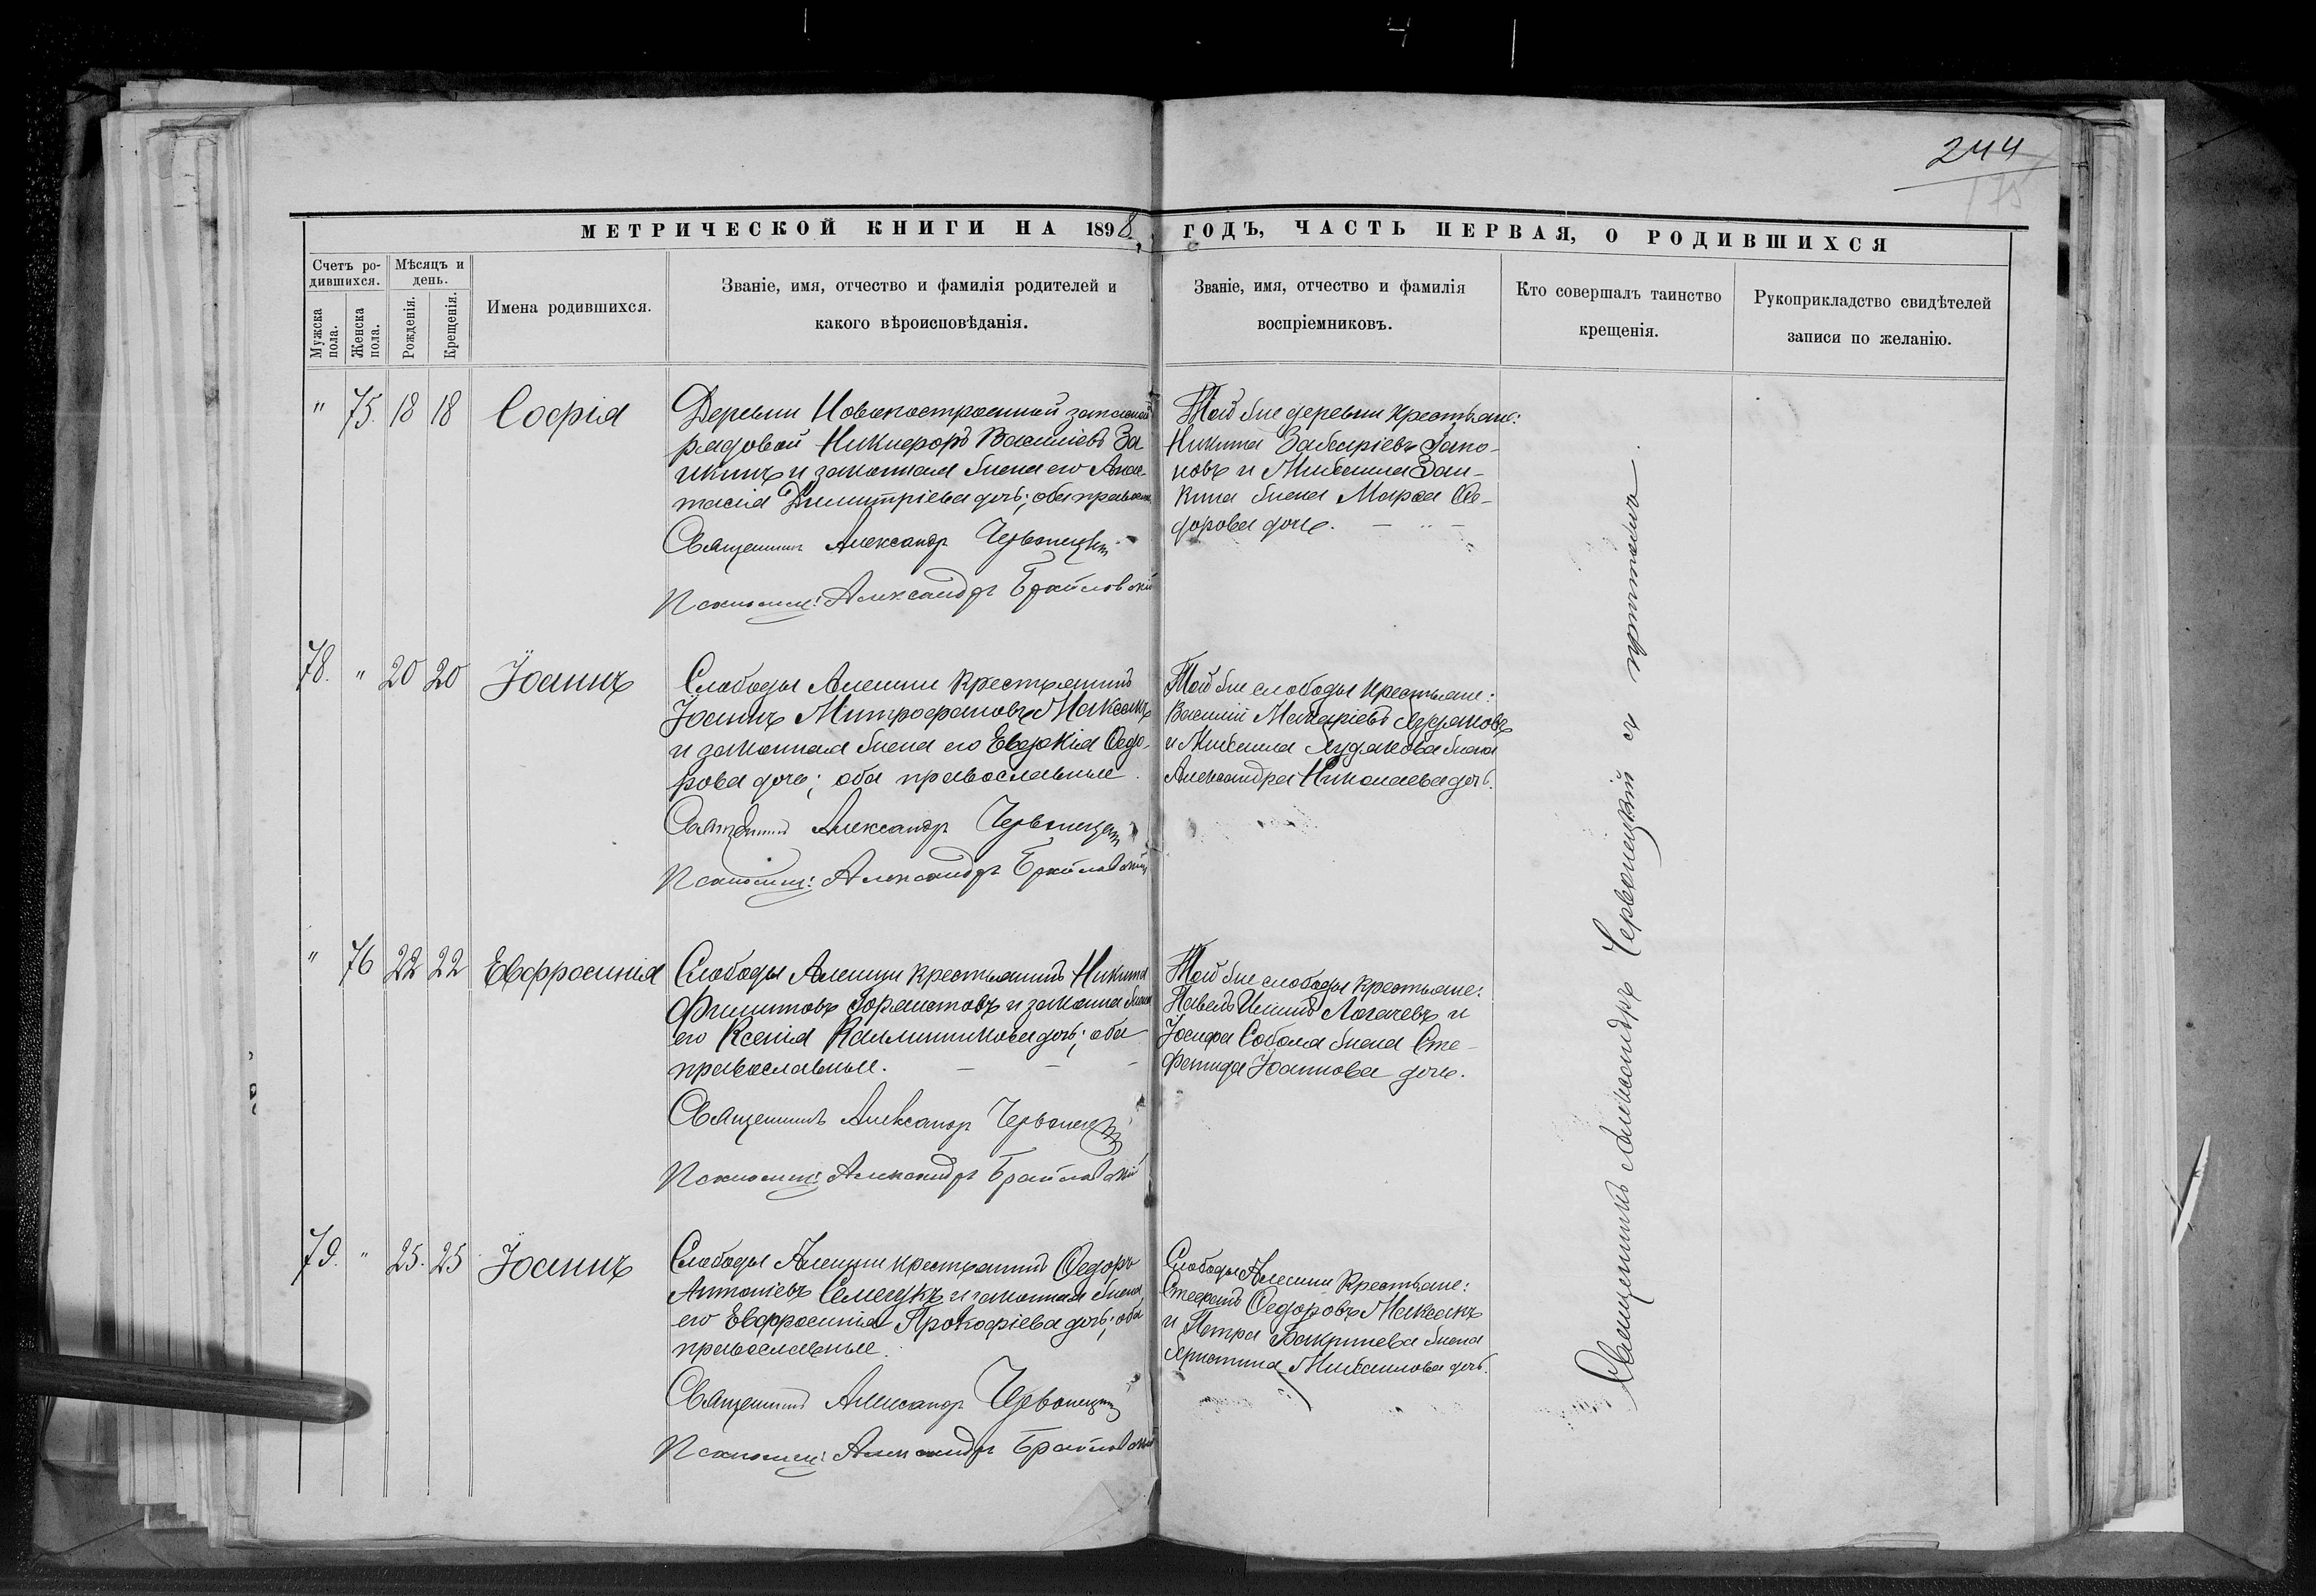 244
175
МЕТРИЧЕСКОЙ КНИГИ НА 1898 ГОДЪ, ЧАСТЬ ПЕРВАЯ, О РОДИВШИХСЯ
Счетъ ро-
дившихся.
Мужска
пола.
Женска
пола.
Мѣсяцъ и
день.
Рожденія.
Крещенія.
Имена родившихся.
Званіе, имя, отчество и фамилія родителей и
какого вѣроисповѣданія.
Званіе, имя, отчество и фамилія
воспріемниковъ.
Кто совершалъ таинство
крещенія.
Рукоприкладство свидѣтелей
записи по желанію.
" 75. 18 18 Софія
Деревни Новопостроенной запасной
рядовой Никифоръ Василіевъ За
икинъ и законная жена его Анас-
тасія Димитріева дочь; оба правосл
Священникъ Александръ Червонецкій
Псаломщ: Александръ Браиловскій
Той же деревни крестьяне:
Никита Захаріевъ
новъ и Михаила Заи-
кина жена Марѳа Ѳе-
дорова дочь.
78. " 20 20 Іоаннъ
Слободы Алешки крестьянинъ
Іоаннъ Митрофановъ Максакъ
и законная жена его Евдокія Ѳедо-
рова дочь; оба православные.
Священникъ Александръ Червонецкій
Псаломщ: Александръ Браиловскій
Той же слободы крестьяне:
Василій Макаріевъ Худяковъ
и Михаила Худякова жена
Александра Николаева дочь.
" 76 22 22 Евфросинія
Слободы Алешки крестьянинъ Никита
Филипповъ и законная жена
его Ксенія дочь; оба
православные.
Священникъ Александръ Червонецкій
Псаломщ: Александръ Браиловскій
Той же слободы крестьяне:
Павелъ Ильинъ Логачевъ и
Іосифа Собола жена Сте-
фанида Іоаннова дочь.
79. " 25. 25 Іоаннъ
Слободы Алешки крестьянинъ Ѳедоръ
Антоніевъ Семецкъ и законная жена
его Евфросинія Прокофіева дочь; оба
православные.
Священникъ Александръ Червонецкій
Псаломщ: Александръ Браиловскій
Слободы Алешки крестьяне:
Стефанъ Ѳедоровъ Максакъ
и Петра жена
Христина Михаилова дочь.
Священникъ Александръ Червонецкій съ причтомъ.